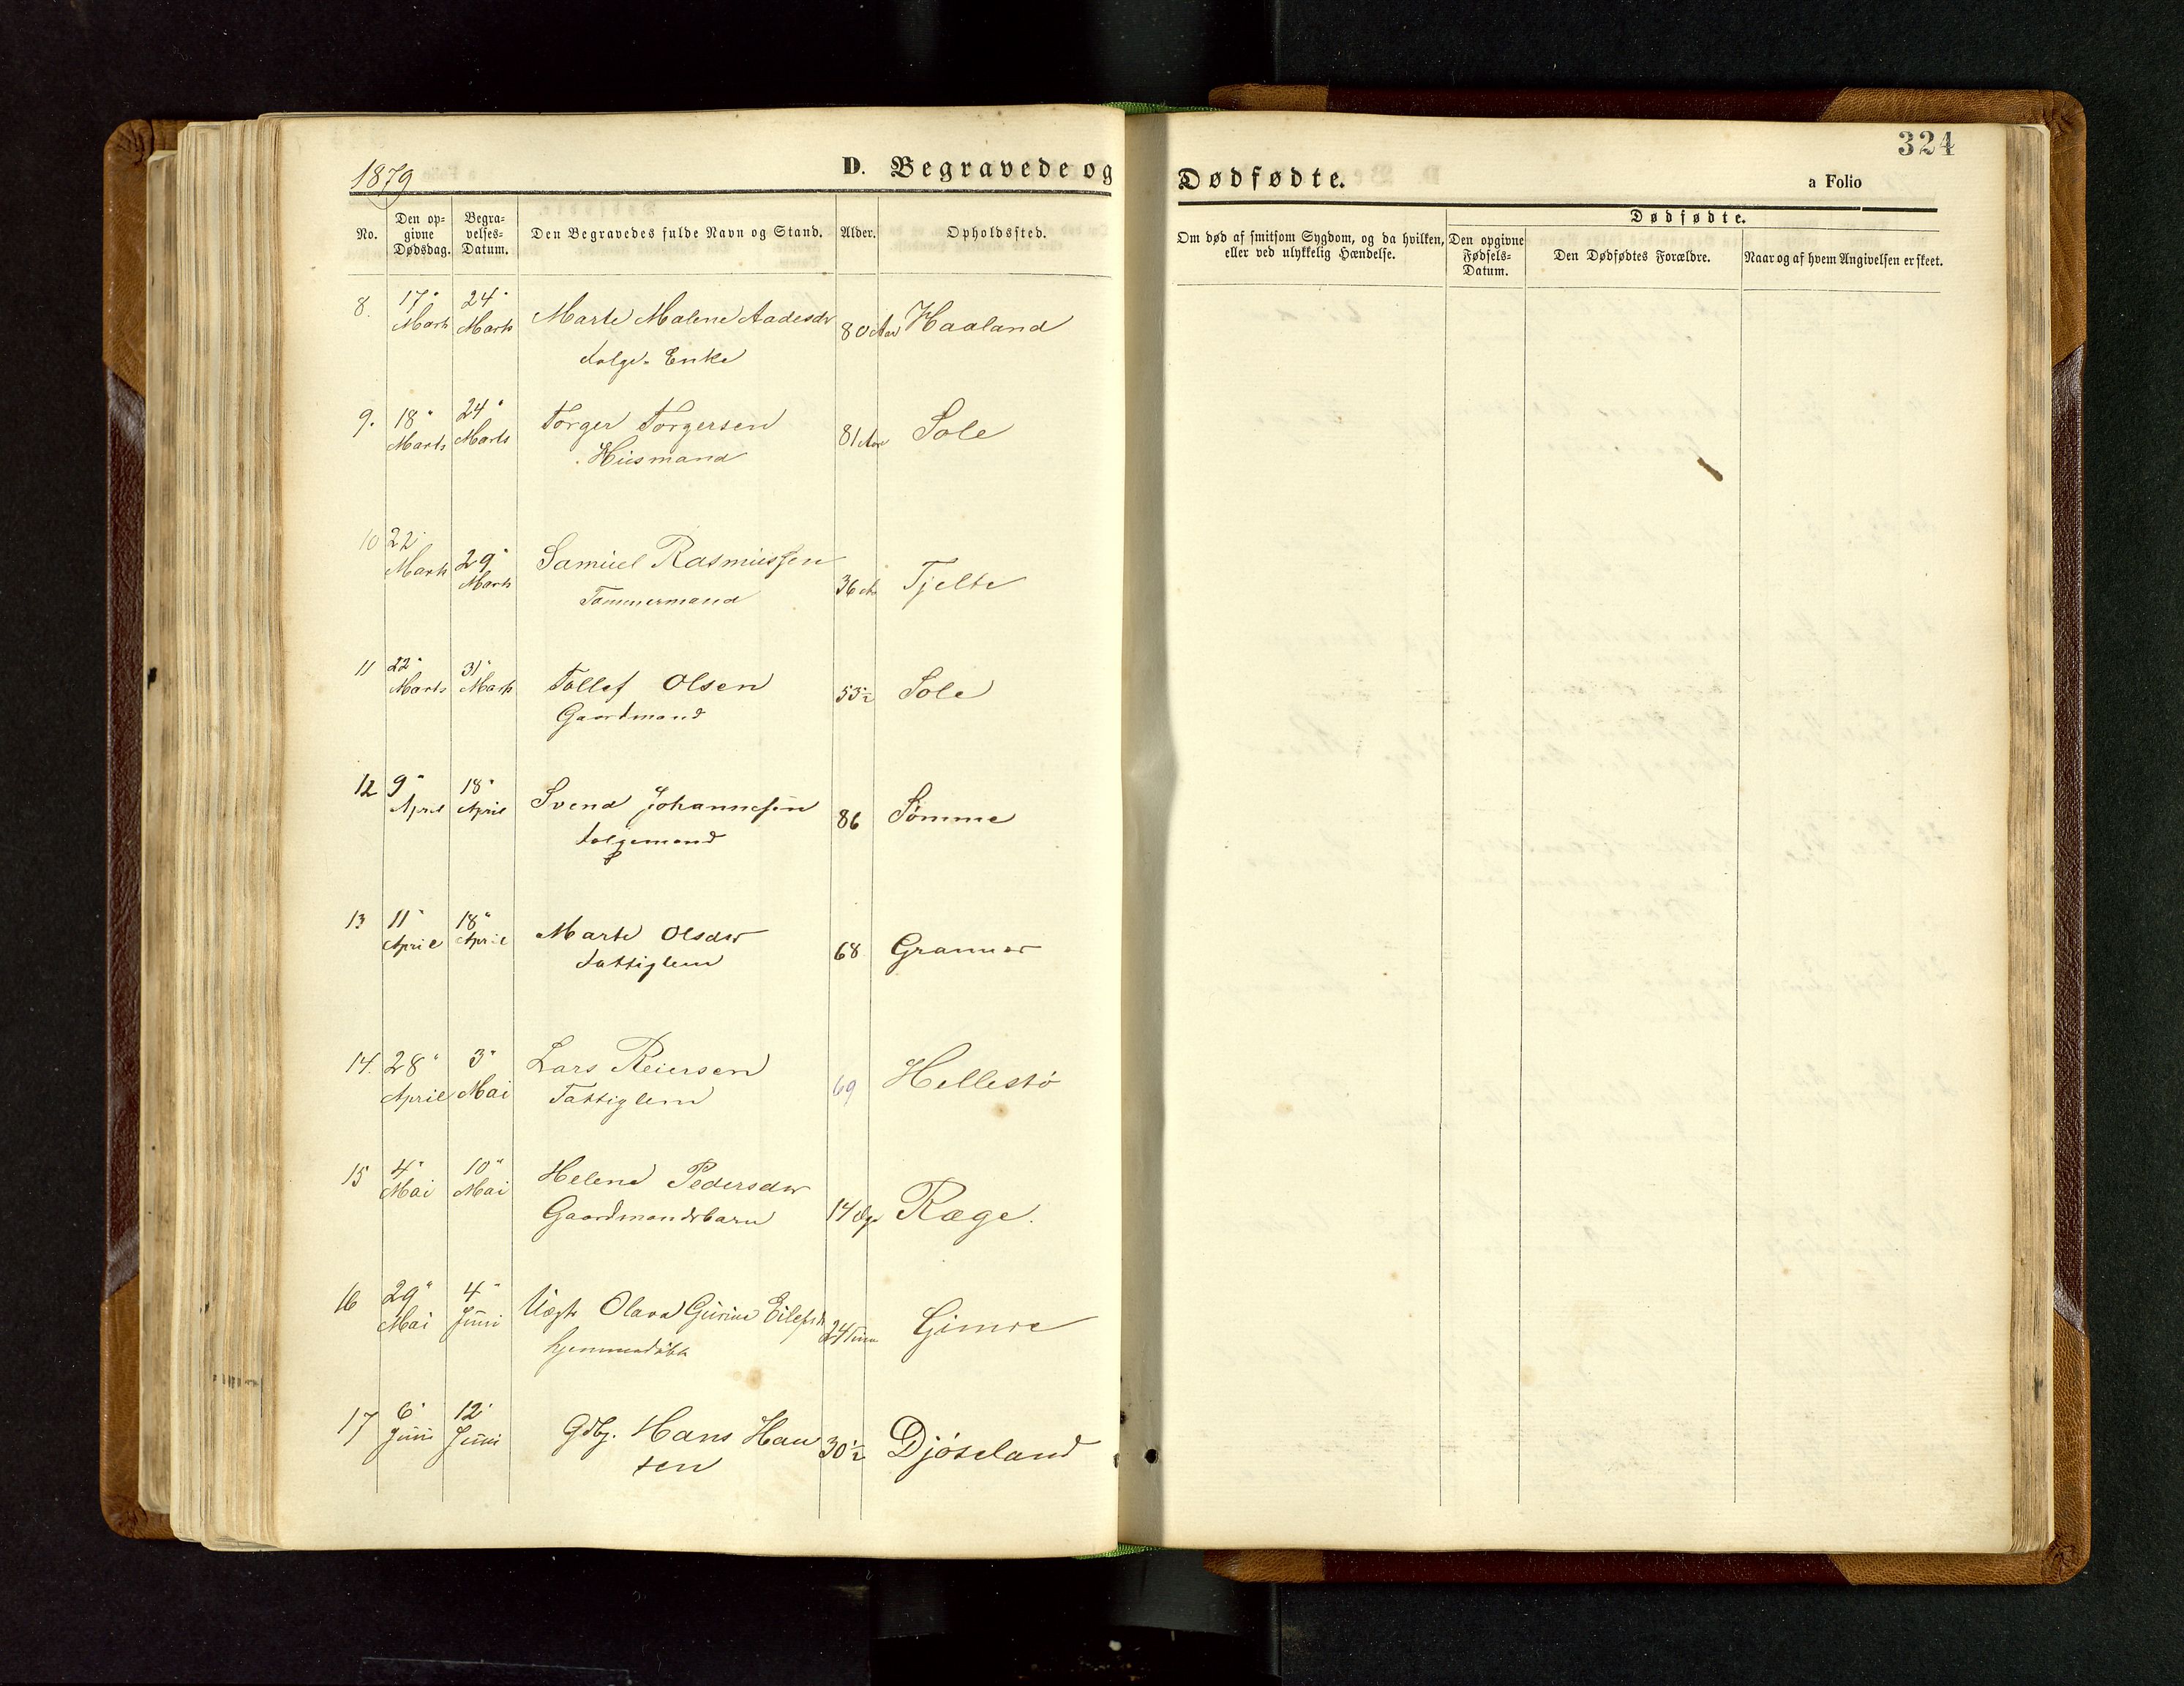 1879
D. Begravede og Dødfødte.
324
a Folio
No.
Den opgivne Dødsdag.
Begravelses-Datum.
Den Begravedes fulde Navn og Stand.
Alder.
Opholdssted.
Om død af smitsom Sygdom, og da hvilken, eller ved ulykkelig Hændelse.
Dødfødte.
Den opgivne Fødsels-Datum.
Den Dødfødtes Forældre.
Naar og af hvem Angivelsen er skeet.
8. 17" Marts 24" Marts Marte Malene Aadesdr 80 Aar Haaland
Folge. Enke
9. 18" Marts 24" Marts Torger Torgersen 81 Aar Sole
Husmand
10 22" Marts 29" Marts Samuel Rasmussen 36 Tjelte
Tømmermand
11 22" Marts 31" Marts Tollef Olsen 53½ Sole
Gaardmand
12 9" April 18" April Svend Johannesen 86 Sømme
Folgemand
13 11" April 18" April Marte Olsdr 68 Grannes
Fattiglem
14. 28" April 3" Mai Lars Reiersen 69 Hellestø
Fattiglem
15 4" Mai 10" Mai Helene Pedersdr 14 Dge Ræge.
Gaardmandsbarn
16 29" Mai 4" Juni Uægte Olava Gurine Eilefsdr 24 Timer Gimre
hjemmedøbt
17 6" Juni 12" Juni Gdbg. Hans Han 30½ Djøseland
sen